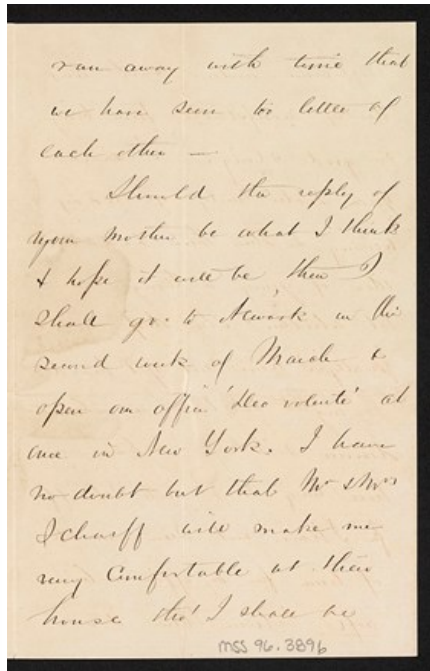 ran away with time that
we have seen too little of
each other —
Should the reply of
your mother be what I think
& hope it will be, then I
shall go to Newark in the
second week of March &
open an office 'Deo volente' at
once in New York. I have
no doubt but that Mr & Mrs
Scharff will make me
very comfortable at their
house tho' I shall be
MSS 96.3896